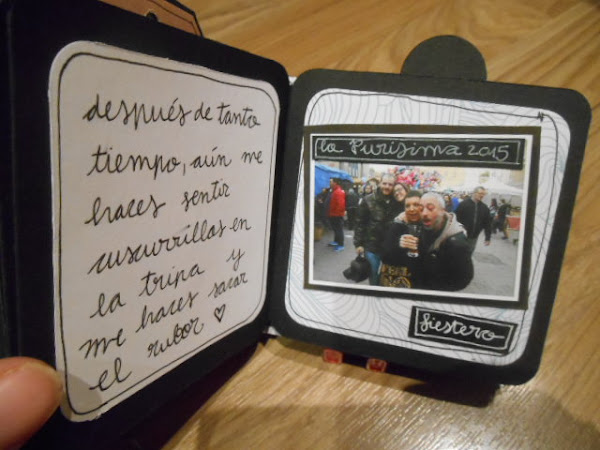 después de tanto
tiempo, aún me
haces sentir
cuscurrillas en
la tripa y
me haces sacar
el rubor ♡
la Purísima 2015
fiestero